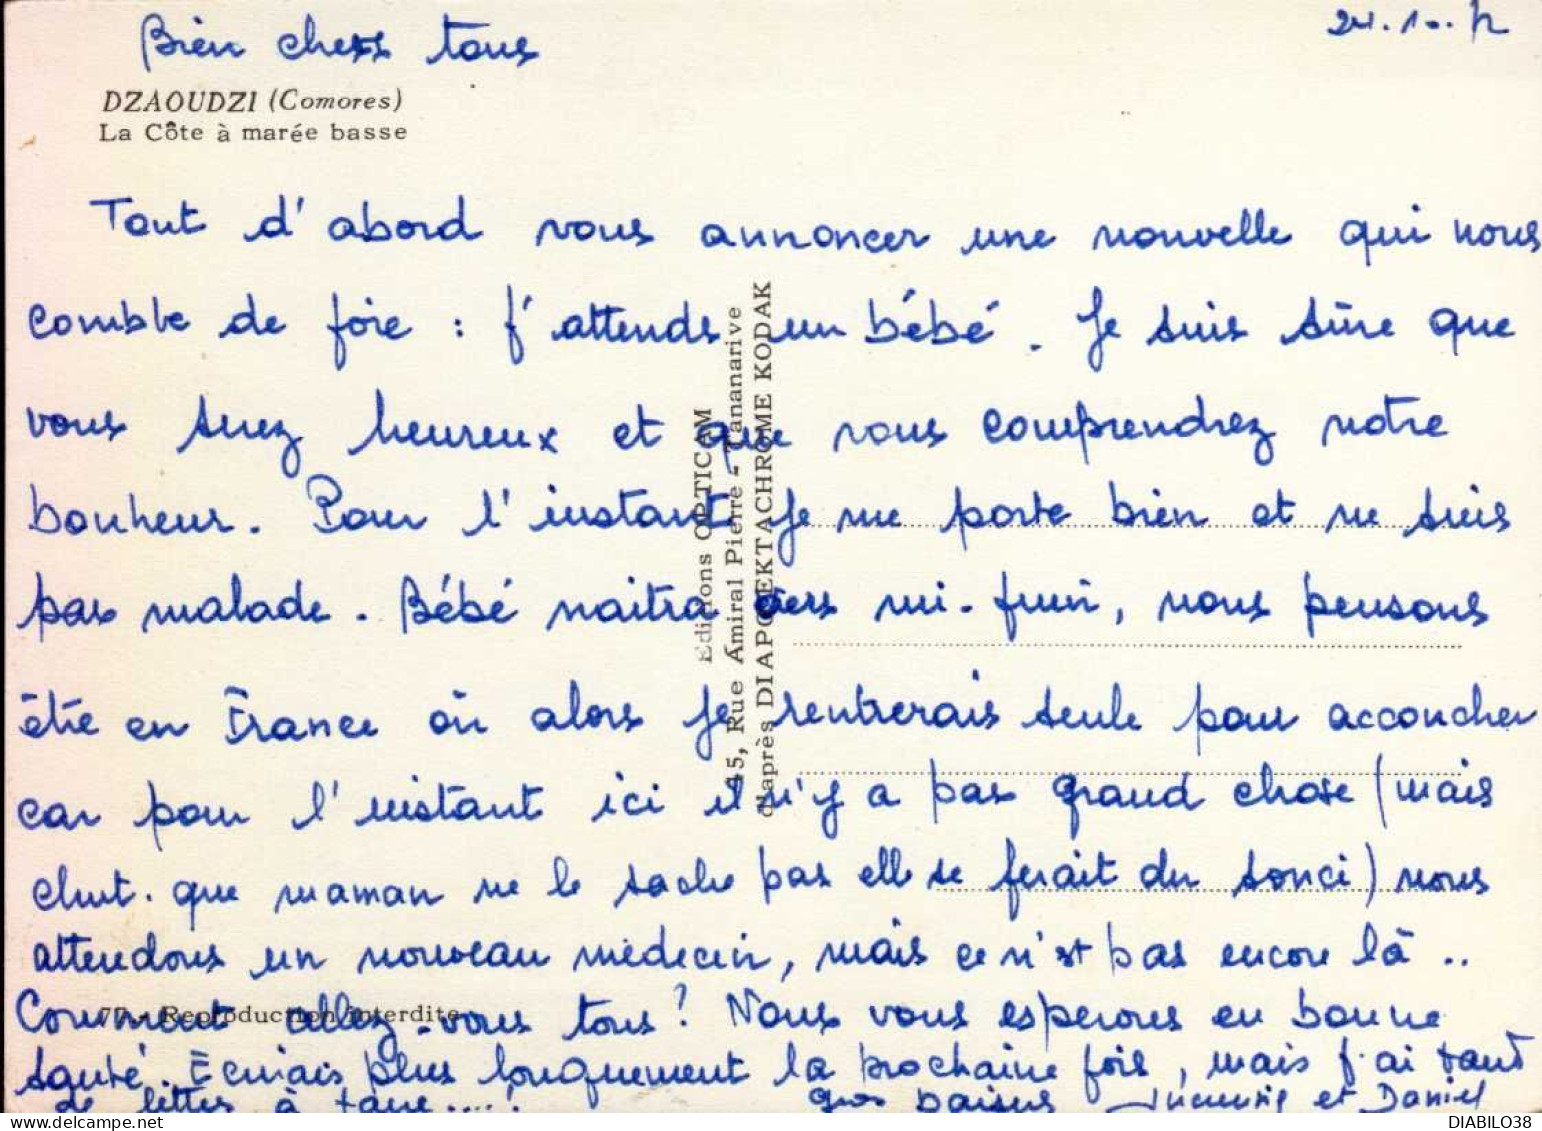 24.10.72
Bien chers tous
DZAOUDZI (Comores)
La Côte à marée basse
Tout d'abord vous annoncer une nouvelle qui nous
comble de joie : j'attends un bébé. Je suis sûre que
vous serez heureux et que vous comprendrez notre
bonheur. Pour l'instant je me porte bien et ne suis
pas malade. Bébé naitra vers mi-juin, nous pensons
être en France ou alors je rentrerais seule pour accoucher
car pour l'instant ici il n'y a pas grand chose (mais
chut. que maman ne le sache pas elle se ferait du souci) nous
attendons un nouveau médecin, mais ce n'est pas encore là ..
Comment allez-vous tous ? Nous vous esperons en bonne
santé. Ecriais plus longuement la prochaine fois, mais j'ai tant
de lettres à faire....! gros baisers et Daniel
77 - Reproduction interdite
Editions OPTICAM
45, Rue Amiral Pierre - Tananarive
d'après DIAPO EKTACHROME KODAK
DIABILO38